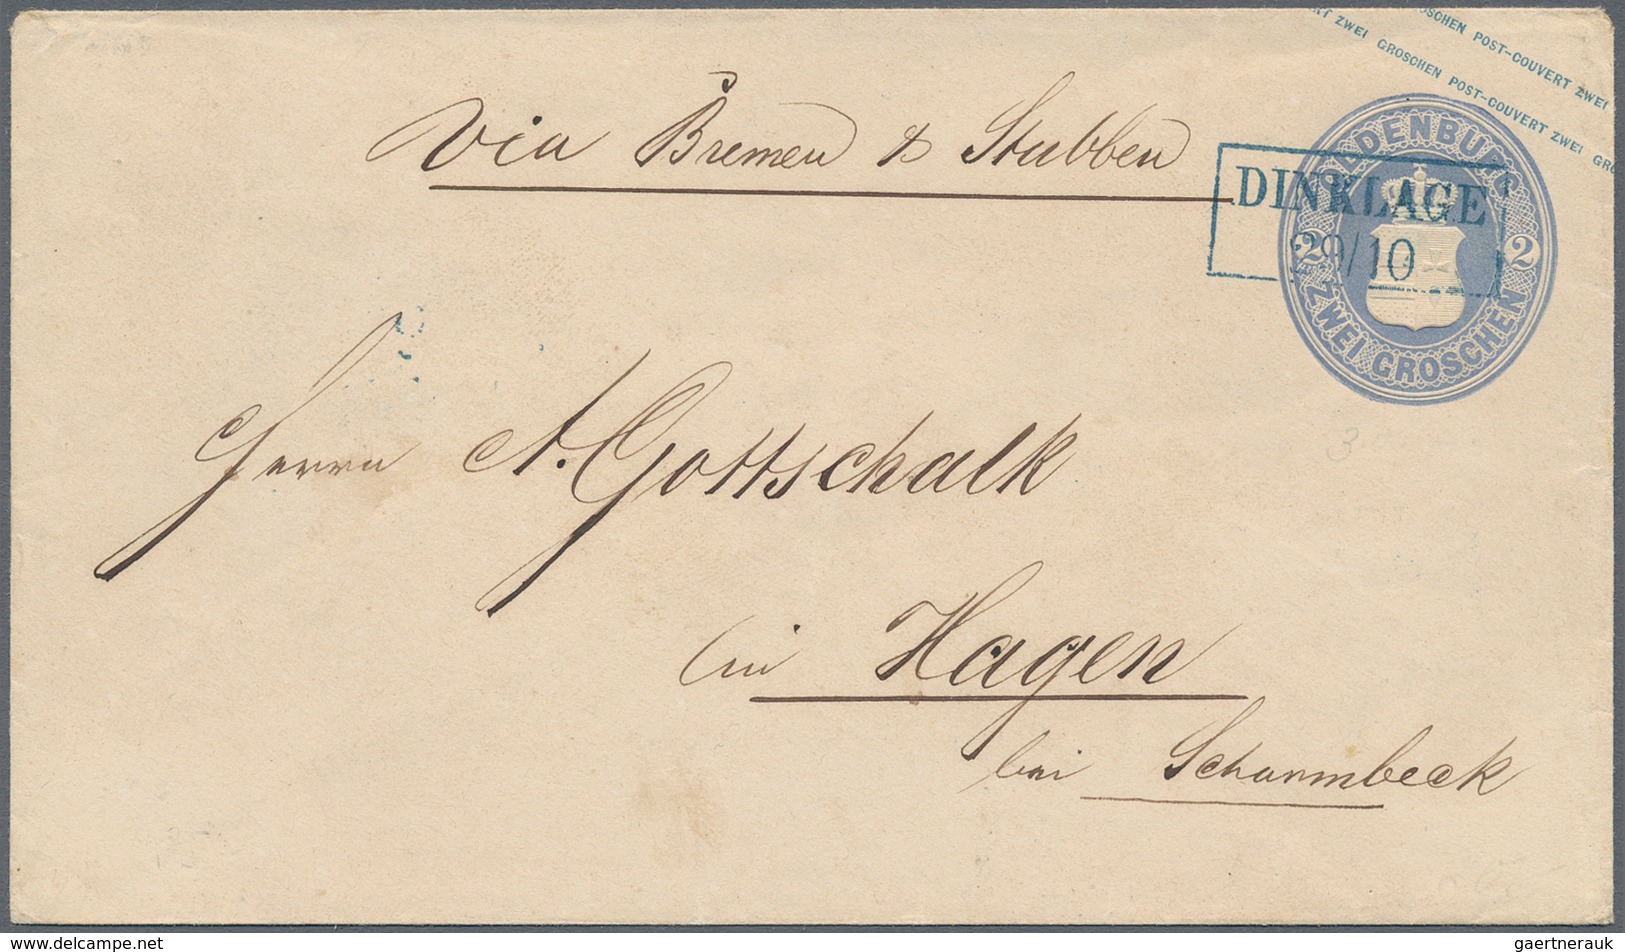 RT ZWEI GROSCHEN POST-COUVERT ZWEI GRO
OSCHEN POST-COUVERT ZWEI
via Bremen & Stubben
OLDENBURG
DINKLAGE
29/10
2 2
ZWEI GROSCHEN
Herrn A. Gottschalk
3
in Hagen
bei Scharmbeck
www.delcampe.net
gaertnerauk